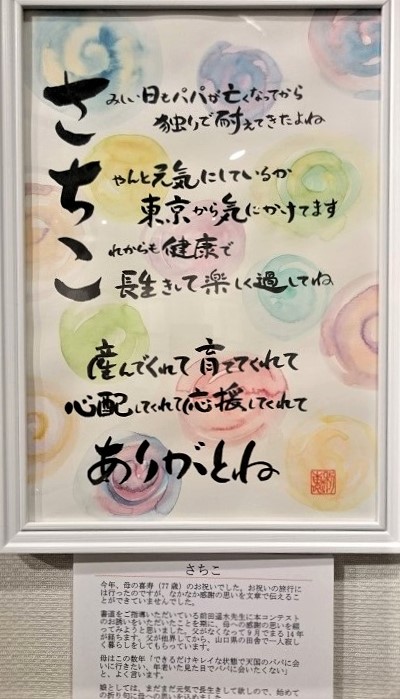 さみしい日もパパが亡くなってから
独りで耐えてきたよね
ちゃんと元気にしているか
東京から気にかけてます
これからも健康で
長生きして楽しく過してね
産んでくれて育ててくれて
心配してくれて応援してくれて
ありがとね
さちこ
今年、母の喜寿(77歳)のお祝いでした。お祝いの旅行に
は行ったのですが、なかなか感謝の思いを文章で伝えるこ
とができていませんでした。
書道をご指導いただいている前田遥水先生に本コンテスト
のお誘いをいただいたことを期に、母への感謝の思いを綴
ってみようと思いました。父がなくなって9月でまる14年
が経ちます。父が他界してから、山口県の田舎で一人寂し
く暮らしをしてもらっています。
母はこの数年「できるだけキレイな状態で天国のパパに会
いに行きたい。年老いた見た目でパパに会いたくない」
と、よく言います。
娘としては、まだまだ元気で長生きして欲しので、始めて